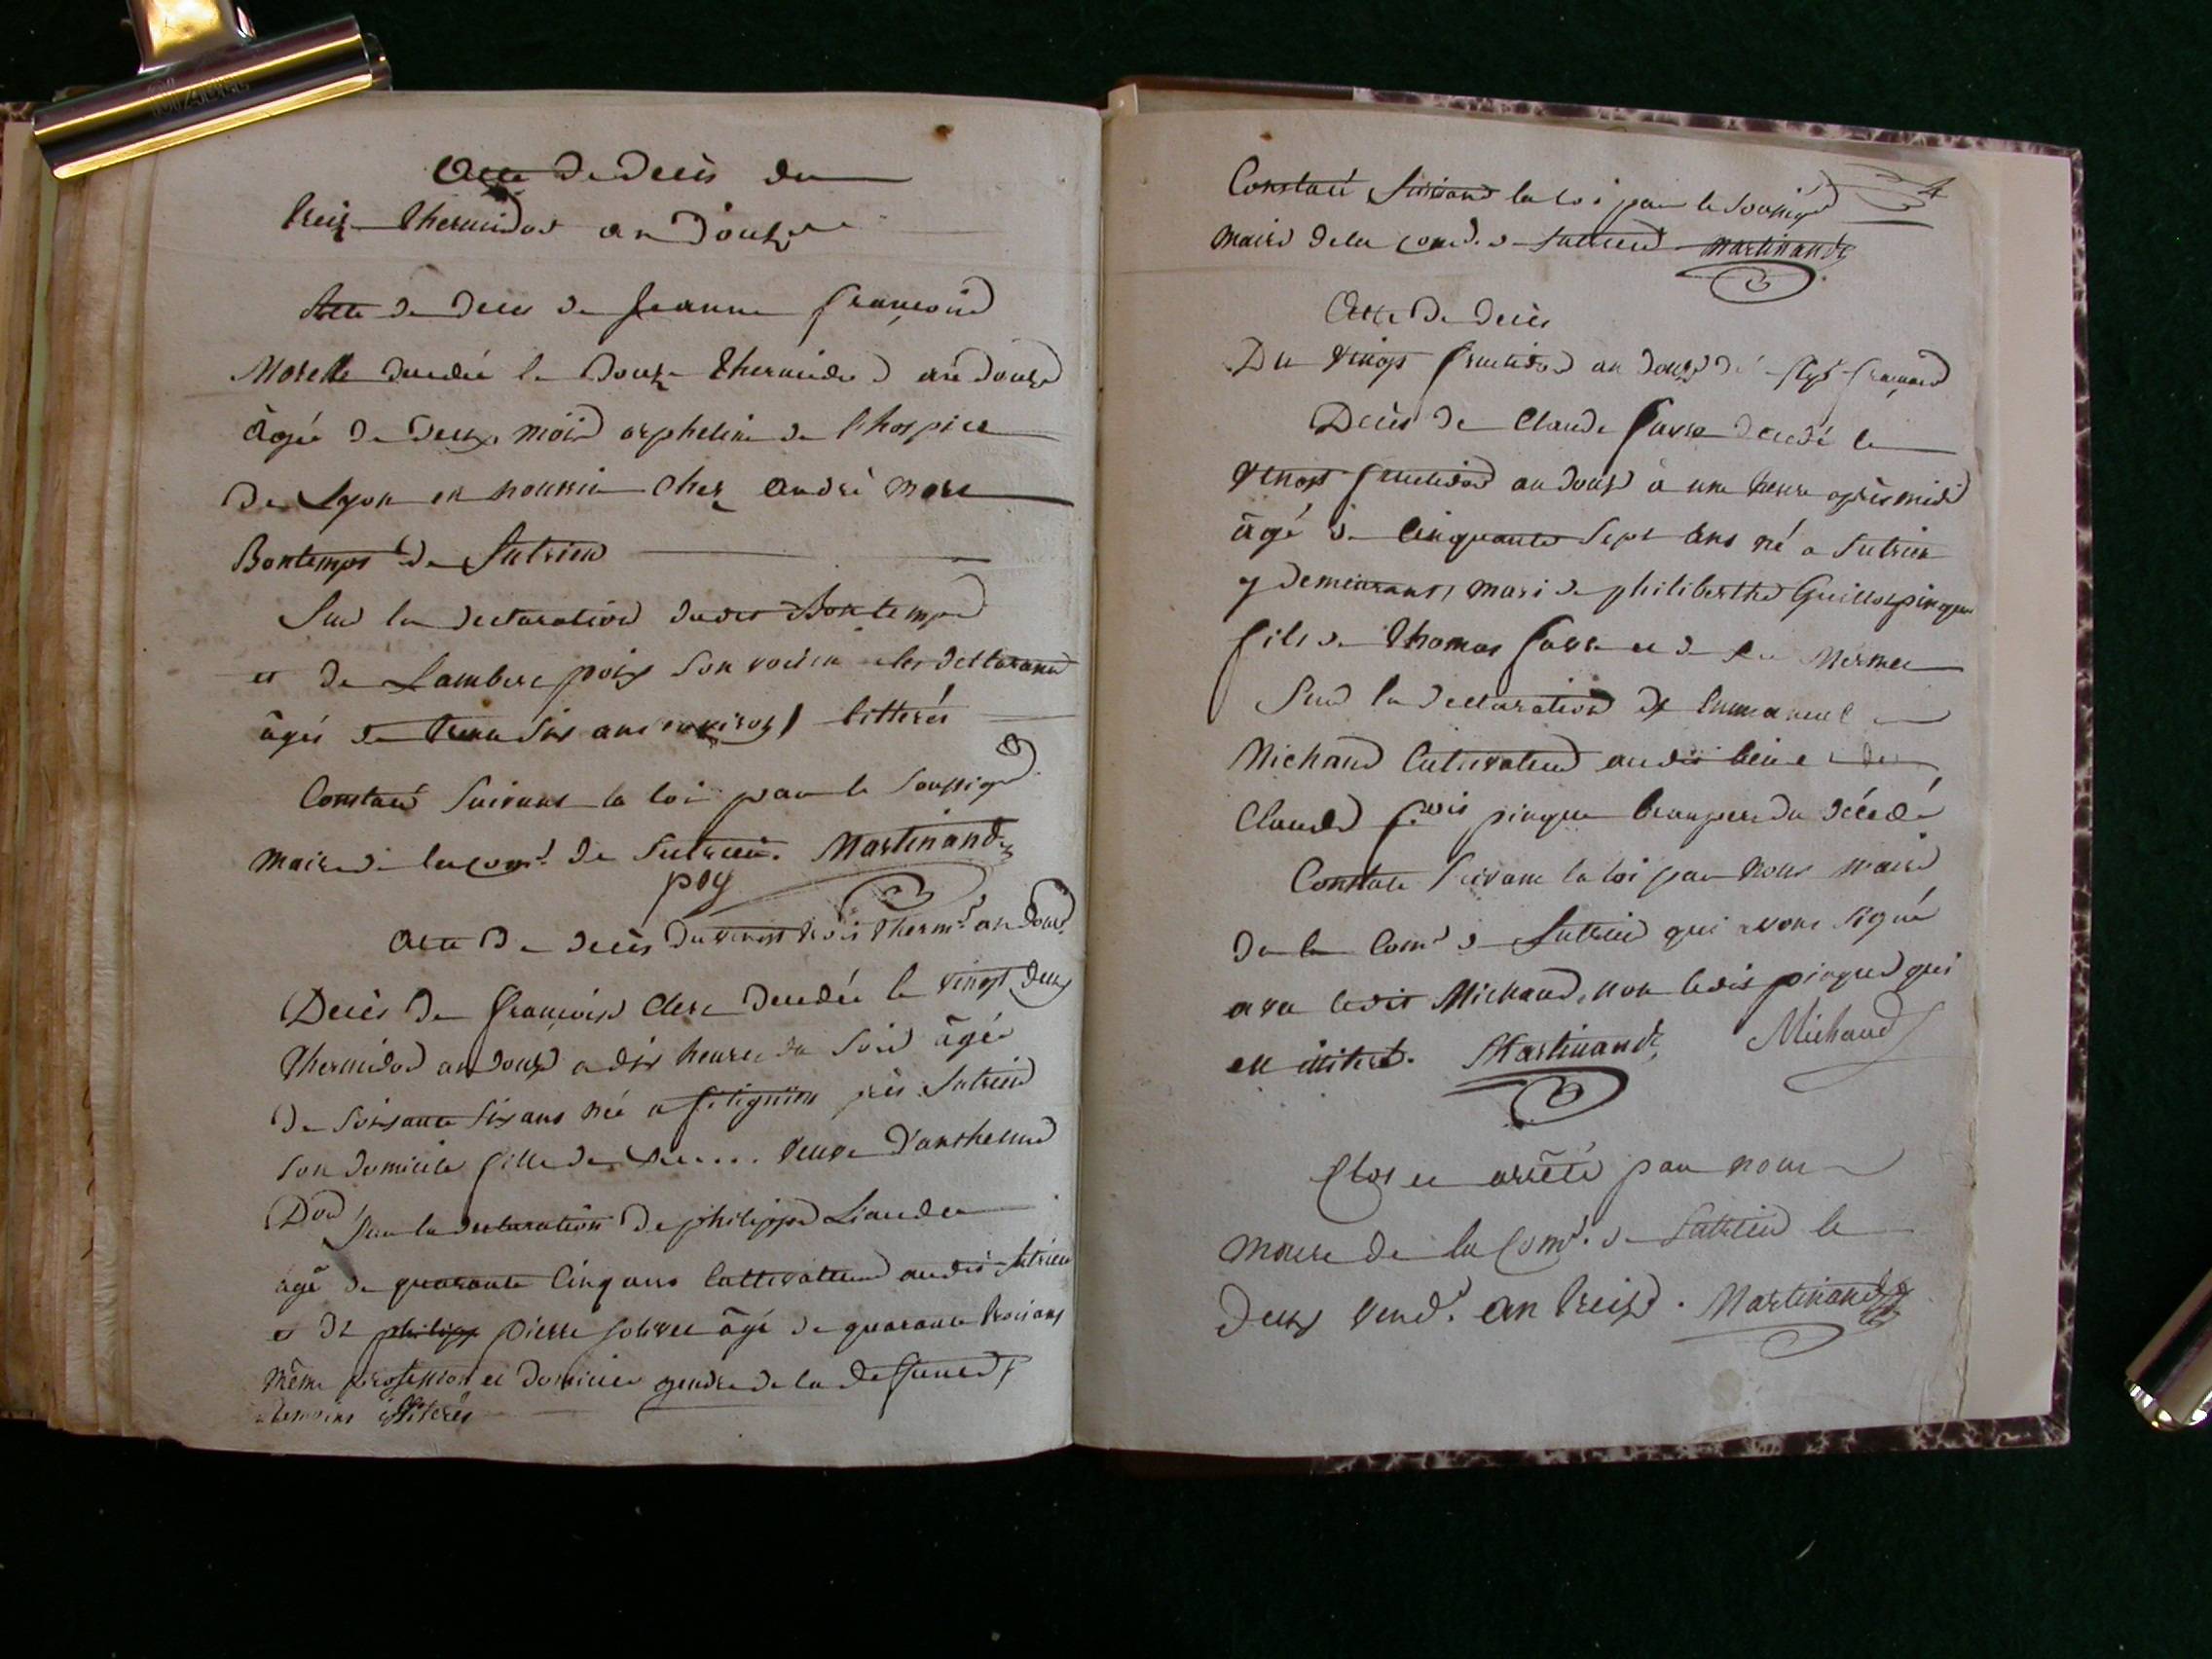 Acte de decès du
treize thermidor an Douze
Acte de deces de Jeanne françoise
Morelle decedée le Douze thermidor an douze
âgée de deux mois orpheline de l'hospice
de Lyon en nourrice chez andré more
Bontemps de Sutrieu
Sur la declaration dudit Bontemps
et de Lambert poix son voisin les declarans
âgés de trente six ans environ, litterés
Constaté suivant la loi par le soussigné
maire de la com.e de Sutrieu. Martinand
poy
Acte de decès du vingt trois therm.r an douze
Decès de françoise Clerc decedée le vingt deux
thermidor an douze a dix heures du soir âgée
de soixante six ans née a fitignieu près Sutrieu
son domicile fille de .... veuve d'anthelme
Sur la declaration de philippe Liaudet
agé de quarante cinq ans cultivateur audit Sutrieu
et de philippe pierre âgé de quarante trois ans
même profession et domicile gendre de la deffunte,
temoins illiterés
4
Constaté suivant la loi par le soussigné
maire de la com.e de Sutrieu Martinand
Acte de decès
Du vingt fructidor an douze de
Decès de Claude favre decedé le
vingt fructidor an douze à une heure après midi
âgé de cinquante sept ans né a Sutrieu
y demeurant, mari de philiberthe Guillot pingue
fils de thomas favre et de Mermet
Sur la declaration de Emmanuel
Michaud cultivateur audit lieu et de
Claude f.ois pingue beaupere du décédé
Constaté suivant la loi par nous maire
de la Com.e de Sutrieu qui avons signé
avec ledit Michaud, non ledit pingue qui
est illiteré. Martinand Michaud
Clos et arrêté par nous
maire de la Com.e de Sutrieu le
deux vend.re an treize. Martinand